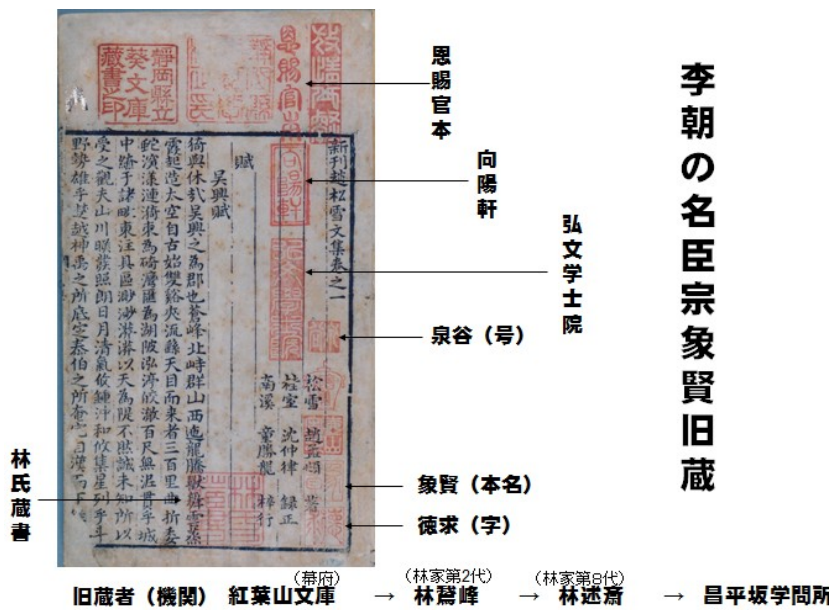 李朝の名臣宗象賢旧蔵
恩賜官本
向陽軒
弘文学士院
泉谷（号）
象賢（本名）
徳求（字）
林氏蔵書
静岡縣立
葵文庫
藏書印
恩賜官本
向陽軒
弘文學士院
新刊趙松雪文集卷之一
松雪 趙孟頫 著
桂室 沈仲律 録正
南溪 章勝龍 梓行
賦
吳興賦
猗與休哉吳興之為郡也蒼峰北峙群山西迤龍騰獸舞雲蒸
霞起造太空自古始雙谿夾流繇天目而来者三百里曲折委
蛇演漾漣漪束為碕灣匯為湖陂泓渟皎澈百尺無泥貫乎城
中繚于諸毗東注具區渺渺漭漭以天為隄不然誠未知所以
受之觀夫山川映發照朗日月清氣攸鍾沖和攸集星列乎斗
野勢雄乎楚越神禹之所底定泰伯之所奄宅自漢而下
（幕府） （林家第2代） （林家第8代）
旧蔵者（機関） 紅葉山文庫 → 林鵞峰 → 林述斎 → 昌平坂学問所